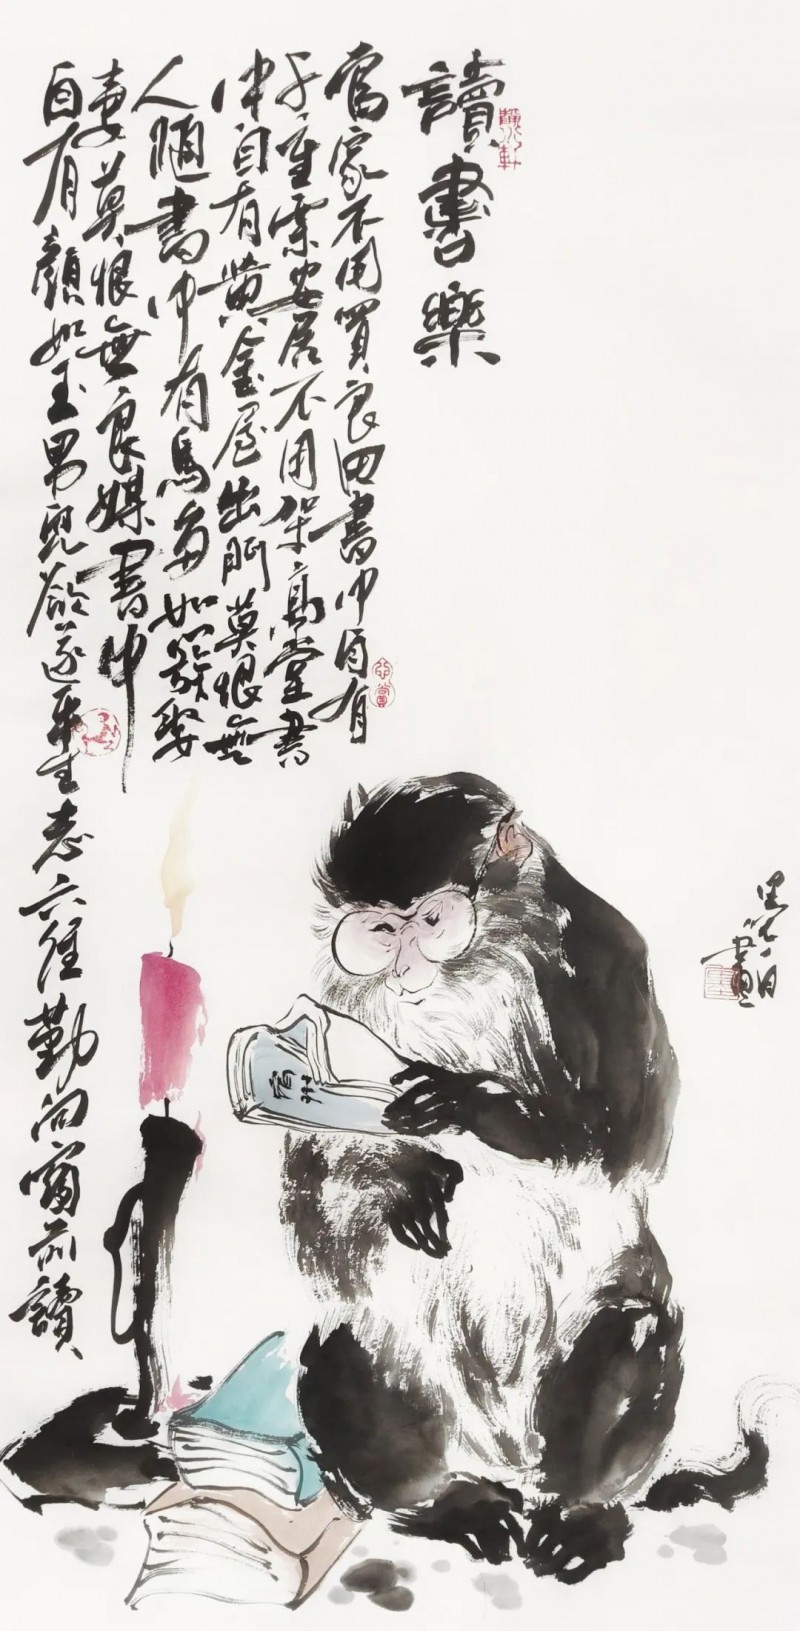 讀書樂
富家不用買良田書中自有
千鍾粟安居不用架高堂書
中自有黃金屋出門莫恨無
人隨書中有馬多如簇娶
妻莫恨無良媒書中
自有顏如玉男兒欲遂平生志六經勤向窗前讀